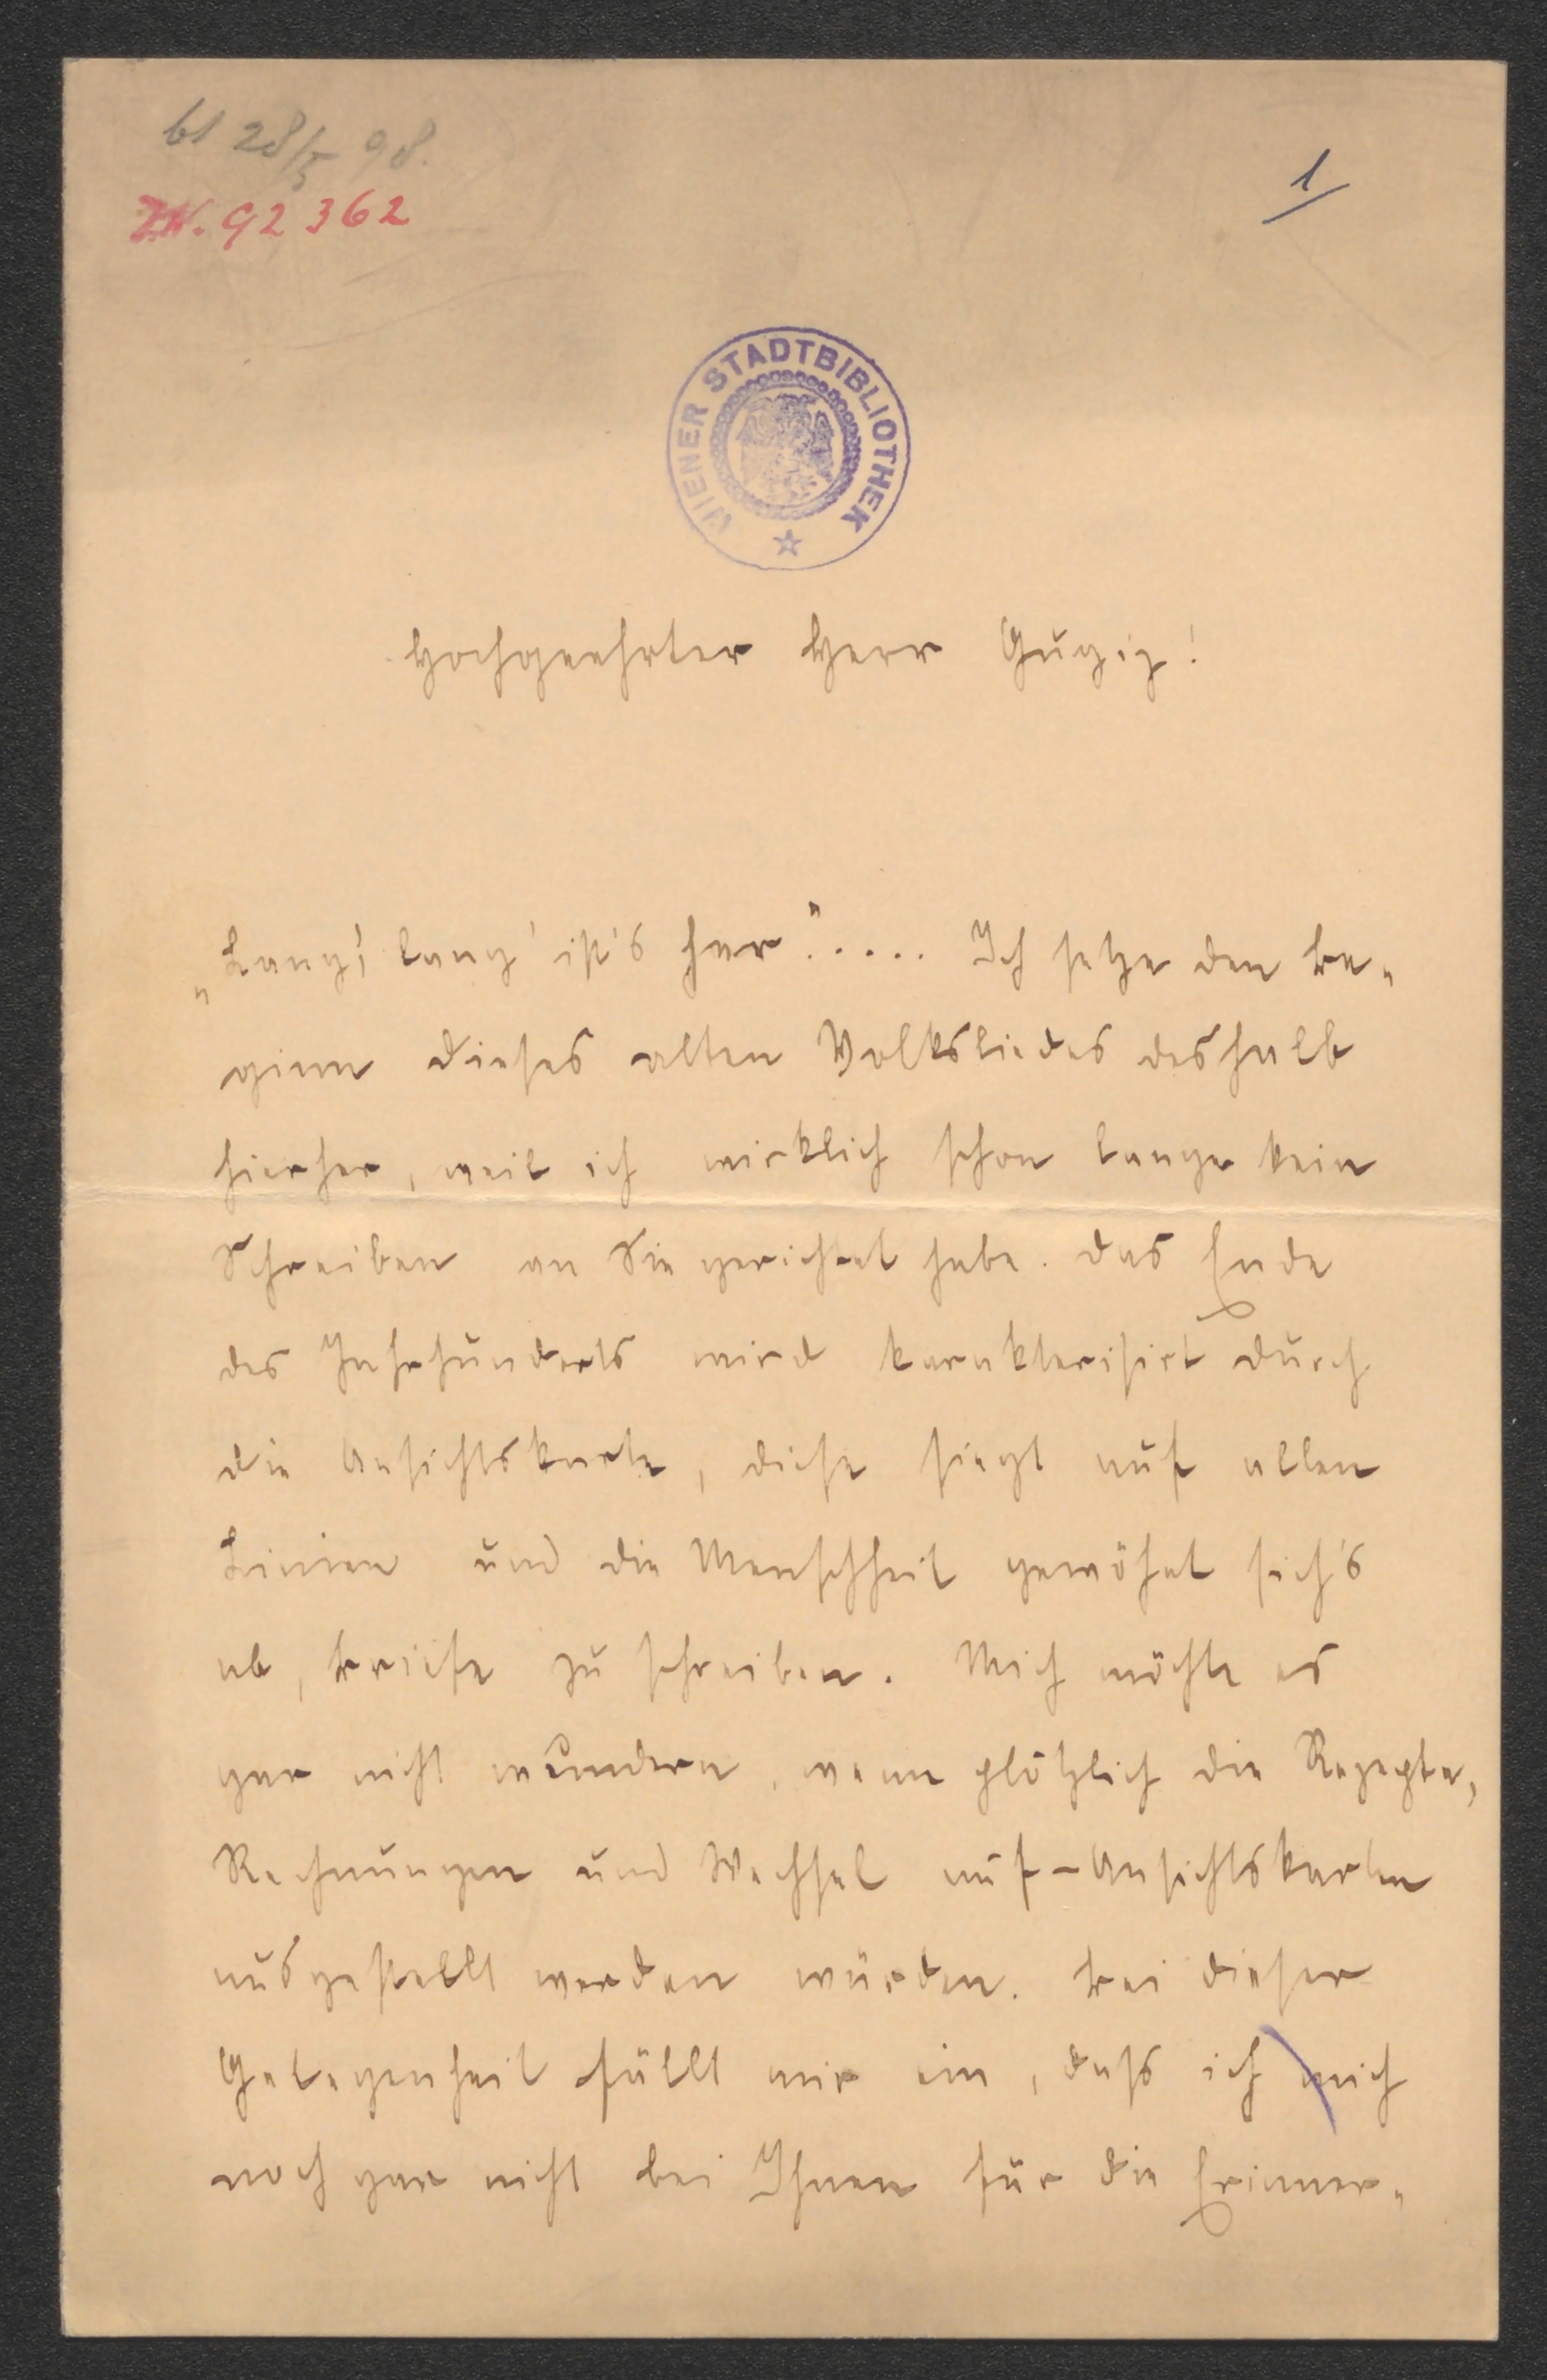 bt 28/5 98.
1
ZN. 92 362
WIENER STADTBIBLIOTHEK
Hochgeehrter Herr Gugiz!
„Lang', lang' ist's her“..... Ich setze den Be-
ginn dieses alten Volksliedes deshalb
hierher, weil ich wirklich schon lange kein
Schreiben an Sie gerichtet habe. Das Ende
des Jahrhunderts wird karakterisirt durch
die Ansichtskarte, diese siegt auf allen
Linien und die Menschheit gewöhnt sich's
ab, Briefe zu schreiben. Mich möchte es
gar nicht wundern, wenn plötzlich die Rezepte,
Rechnungen und Wechsel auf - Ansichtskarten
ausgestellt werden würden. Bei dieser
Gelegenheit fällt mir ein, dass ich mich
noch gar nicht bei Ihnen für die Erinner-